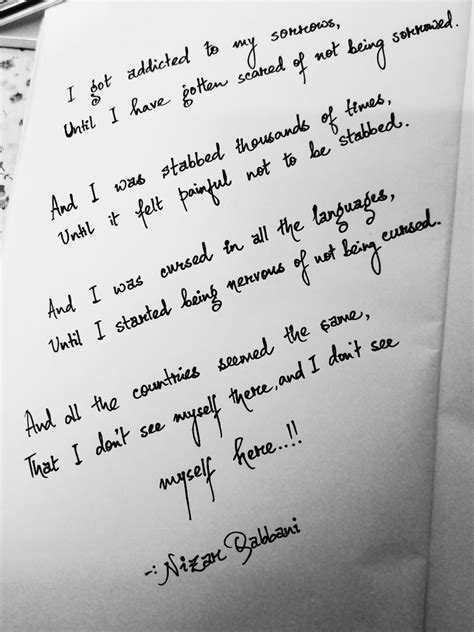 I got addicted to my sorrows,
Until I have gotten scared of not being sorrowed.
And I was stabbed thousands of times,
Until it felt painful not to be stabbed.
And I was cursed in all the languages,
Until I started being nervous of not being cursed.
And all the countries seemed the same,
That I don't see myself there, and I don't see
myself here...!!
-: Nizar Qabbani